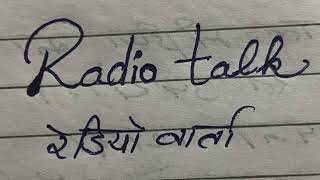 Radio talk
रेडियो वार्ता